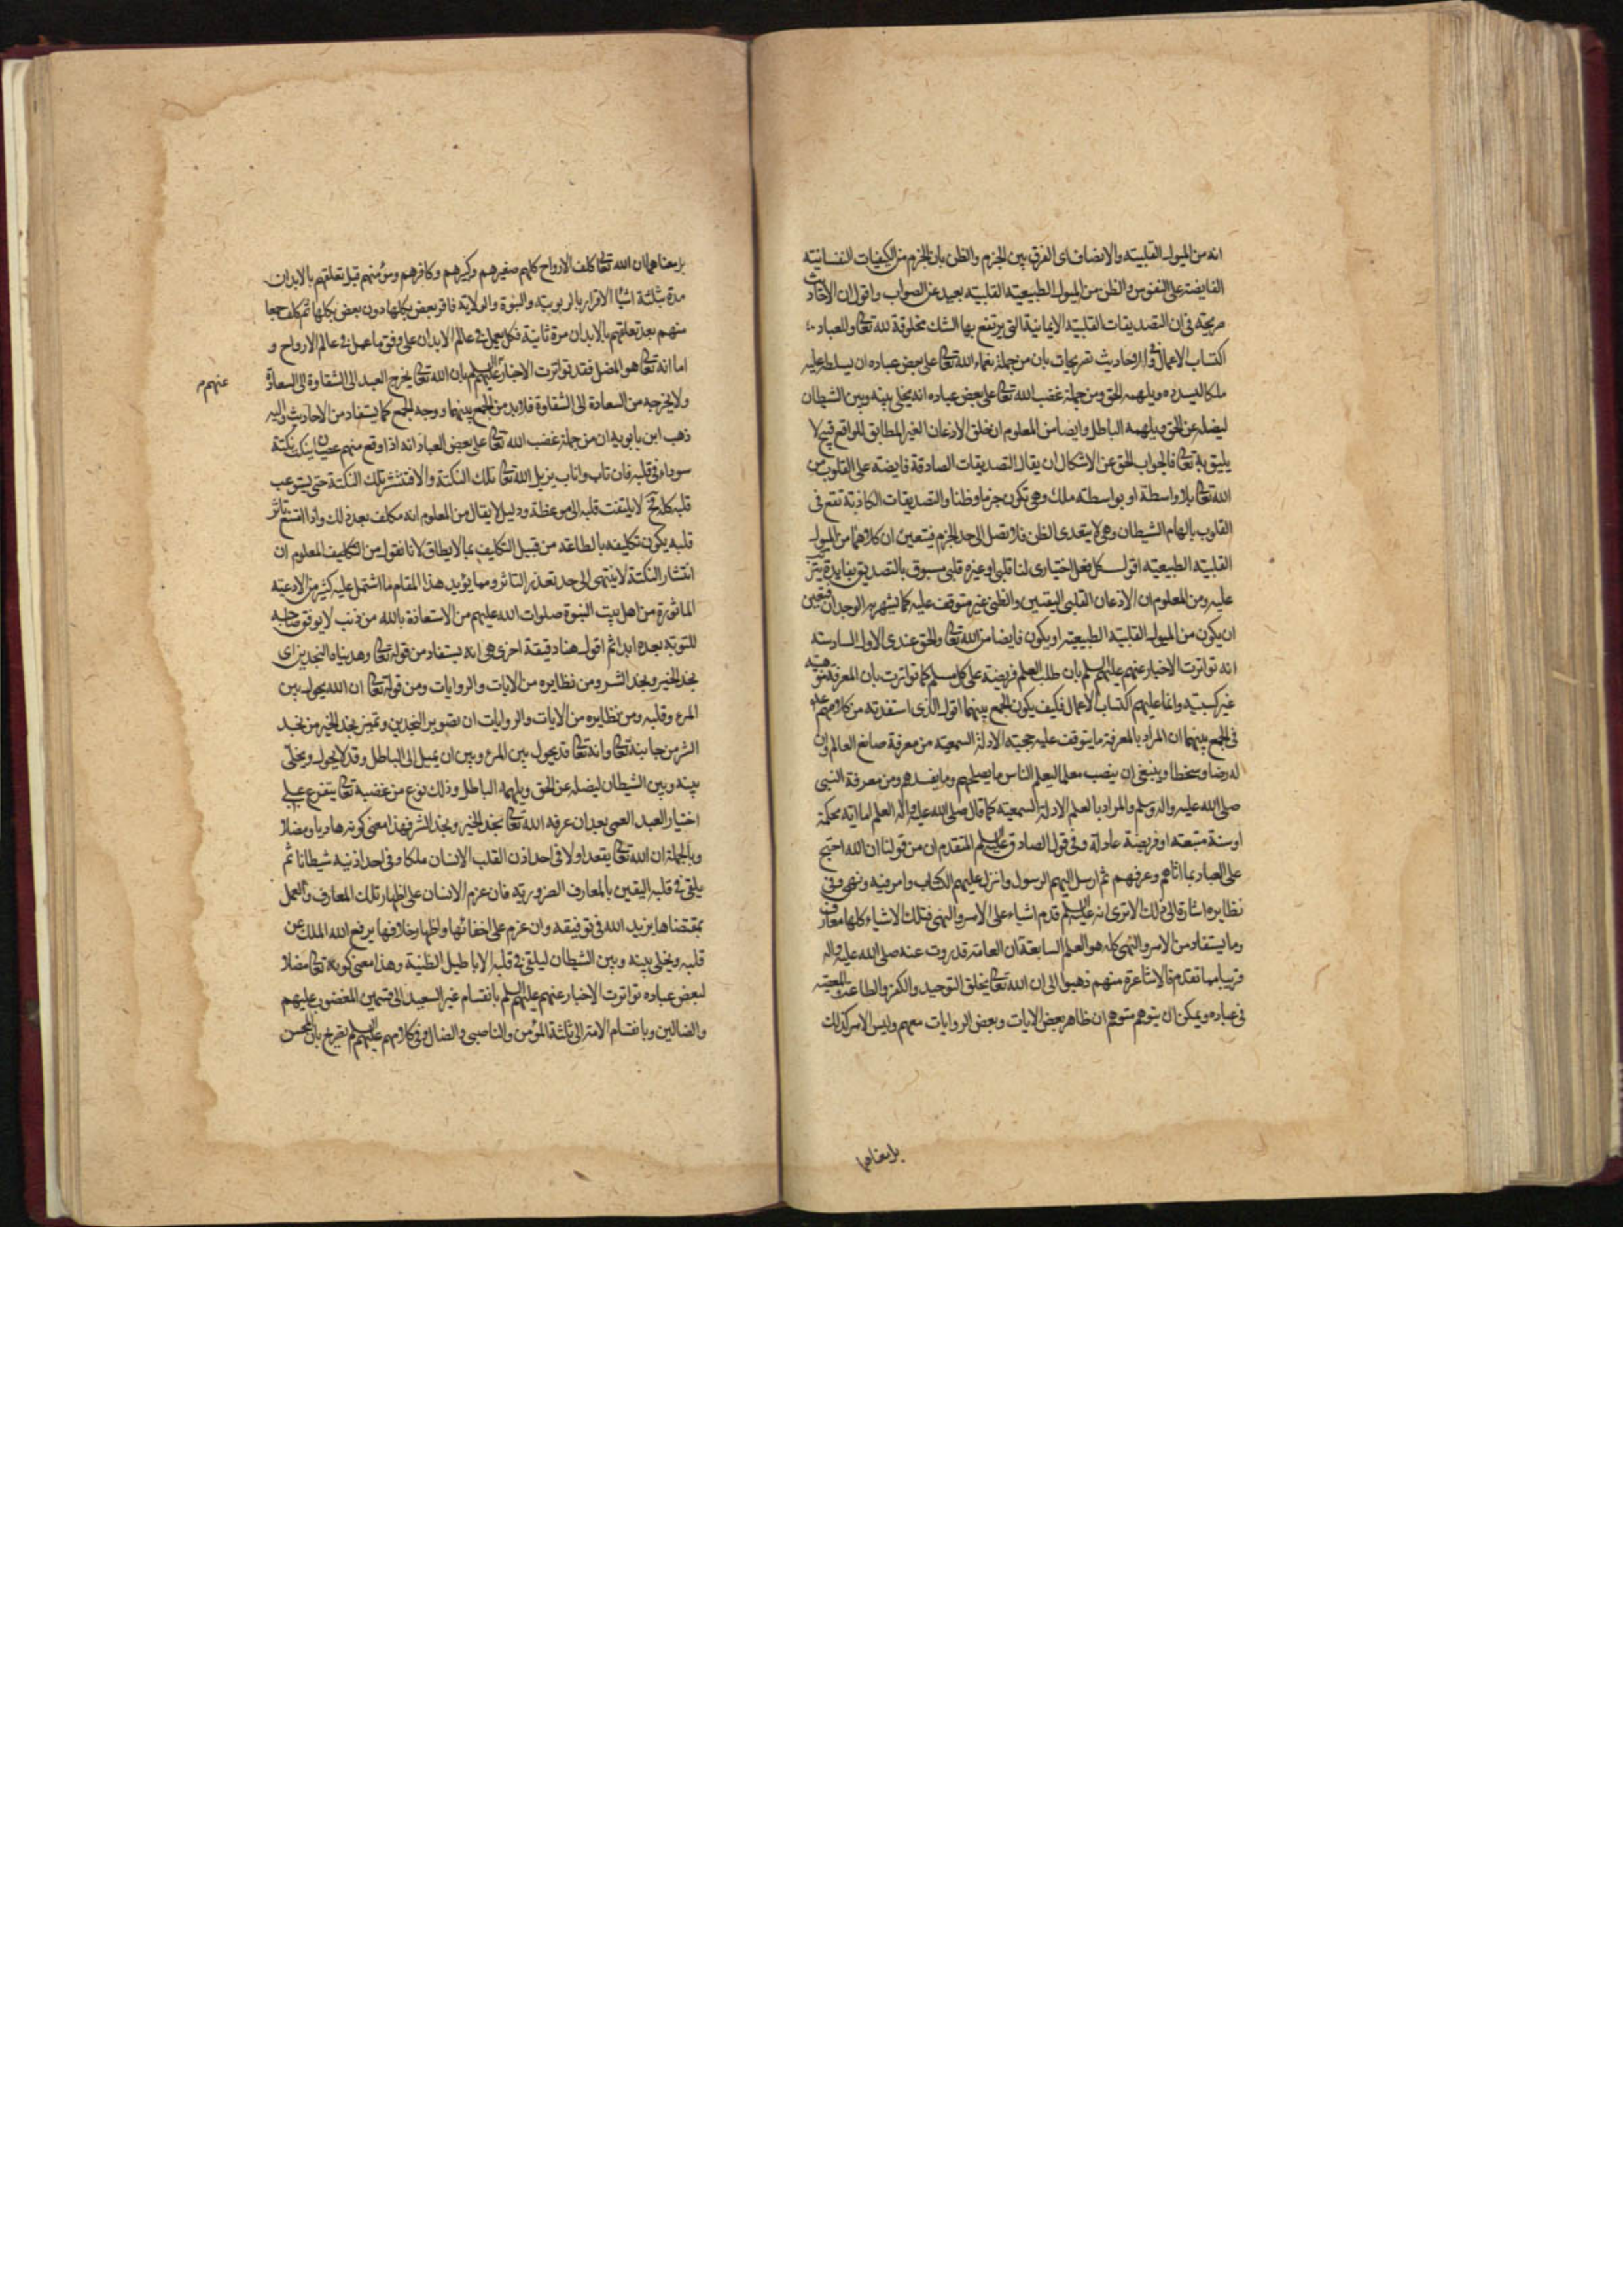 انه من الميول القلبيته والانصاف اى الفرق بين الجزم والظن بان الجزم من الكيفيات النفسانيته
الفايضته على النفوس والظن من الميول الطبيعيته القلبيته بعيد عن الصواب واقول ان الاحاديث
صريحته فى ان التصديقات القلبيته الايمانيته التى يرتفع بها الشك مخلوقة لله تعالى وللعباد
اكتساب الاعمال وفى الاحاديث تصريحات بان من جملة نعماء الله تعالى على بعض عباده ان يسلط عليه
ملكا ليسدده ويلهمه الحق ومن جملة غضب الله تعالى على بعض عباده انه يخلى بينه وبين الشيطان
ليضله عن الحق ويلهمه الباطل وايضا من المعلوم ان خلق الاذعان الغير المطابق للواقع قبيح لا
يليق به تعالى فالجواب الحق عن الاشكال ان يقال التصديقات الصادقة فايضته على القلوب من
الله تعالى بلا واسطة او بواسطته ملك وهى تكون جزما وظنا والتصديقات الكاذبة تقع فى
القلوب بالهام الشيطان وهى لا يتعدى الظن فلا تصل الى حد الجزم فيتعين ان كلاهما من الميول
القلبيته الطبيعيته اقول كل فعل اختيارى لنا قلبى او غيره قلبى مسبوق بالتصديق بفايدة يترتب
عليه ومن المعلوم ان الاذعان القلبى اليقينى والظنى غير متوقف عليه كما يشهد به الوجدان فيتعين
ان يكون من الميول القلبيته الطبيعيته او يكون فايضا من الله تعالى والحق عندى الاول السادسته
انه تواترت الاخبار عنهم عليهم السلم بان طلب العلم فريضته على كل مسلم كما تواترت بان المعرفة موهبيته
غير كسبيته وانما عليهم اكتساب الاعمال فكيف يكون الجمع بينهما اقول الذى استفدته من كلامهم عليهم
فى الجمع بينهما ان المراد بالمعرفة ما يتوقف عليه حجيته الادلة السمعيته من معرفة صانع العالم وان
له رضا وسخطا وينبغى ان ينصب معلما ليعلم الناس ما يصلحهم وما يفسدهم ومن معرفة النبى
صلى الله عليه واله وسلم والمراد بالعلم الادلة السمعيته كما قال صلى الله عليه واله العلم اما اية محكمة
او سنة متبعته او فريضته عادلة وفى قول الصادق عليه السلم المتقدم ان من قولنا ان الله احتج
على العباد بما اتاهم وعرفهم ثم ارسل اليهم الرسول وانزل عليهم الكتاب وامر فيه ونهى وفى
نظايره اشارة الى ذلك الا ترى انه عليه السلم قدم اشياء على الامر والنهى فتلك الاشياء كلها معارف
وما يستفاد من الامر والنهى كله هو العلم السابعة ان العامته قد روت عنه صلى الله عليه واله
قريبا مما تقدم فالاشاعرة منهم ذهبوا الى ان الله تعالى يخلق التوحيد والكفر والطاعته والمعصيته
فى عباده ويمكن ان يتوهم متوهم ان ظاهر بعض الايات وبعض الروايات معهم وليس الامر كذلك
بل معناهما
بل معناهما ان الله تعالى كلف الارواح كلهم صغيرهم وكبيرهم وكافرهم ومؤمنهم قبل تعلقهم بالابدان
مدة بثلثة اشيا الاقرار بالربوبيته والنبوة والولايته فاقر بعض بكلها دون بعض بكلها ثم كلف جمعا
منهم بعد تعلقهم بالابدان مرة ثانيته فكل يعمل فى عالم الابدان على وفق ما عمل فى عالم الارواح و
اما انه تعالى هو المضل فقد تواترت الاخبار عليهم السلم بان الله تعالى يخرج العبد الى الشقاوة الى السعادة
عنهم م
ولا يخرجه من السعادة الى الشقاوة فلابد من الجمع بينهما ووجه الجمع كما يستفاد من الاحاديث واليه
ذهب ابن بابويه ان من جملة غضب الله تعالى على بعض العباد انه اذا وقع منهم عصيان ينكت نكتة
سوداء فى قلبه فان تاب واناب يزيل الله تعالى تلك النكتة والا فتنتشر تلك النكتة حتى يستوعب
قلبه كله ح لا يلتفت قلبه الى موعظة ودليل لا يقال من المعلوم انه مكلف بعد ذلك واذا امتنع تاثر
قلبه يكون تكليفه بالطاعته من قبيل التكليف بما لا يطاق لانا نقول من التكليف المعلوم ان
انتشار النكتة لا ينتهى الى حد تعذر التاثر ومما يؤيد هذا المقام ما اشتمل عليه كثير من الادعيته
الماثورة من اهل بيت النبوة صلوات الله عليهم من الاستعاذة بالله من ذنب لا يوفق صاحبه
للتوبة بعده ابدا ثم اقول هنا دقيقة اخرى هى انه يستفاد من قوله تعالى وهديناه النجدين اى
نجد الخير ونجد الشر ومن نظايره من الايات والروايات ومن قوله تعالى ان الله يحول بين
المرء وقلبه ومن نظايره من الايات والروايات ان تصوير النجدين وتميز نجد الخير من نجد
الشر من جانبه تعالى وانه تعالى قد يحول بين المرء وبين ان يميل الى الباطل وقد لا يحول ويخلى
بينه وبين الشيطان ليضله عن الحق ويلهمه الباطل وذلك نوع من غضبه تعالى يتفرع على
اختيار العبد العمى بعد ان عرفه الله تعالى نجد الخير ونجد الشر فهذا معنى كونه هاديا ومضلا
وبالجملة ان الله تعالى يقعد اولا فى احد اذنى القلب الانسان ملكا وفى احد اذنيه شيطانا ثم
يلقى فى قلبه اليقين بالمعارف الضروريته فان عزم الانسان على اظهار تلك المعارف والعمل
بمقتضاها يزيد الله فى توفيقه وان عزم على اخفائها واظهار خلافها يرفع الله الملك عن
قلبه ويخلى بينه وبين الشيطان ليلقى فى قلبه الاباطيل الظنية وهذا معنى كونه تعالى مضلا
لبعض عباده تواترت الاخبار عنهم عليهم السلم بانقسام غير السعيد الى قسمين المغضوب عليهم
والضالين وبانقسام الامة الى ثلثة المؤمن والناصبى والضال وفى كلامهم عليهم السلم تصريح بان